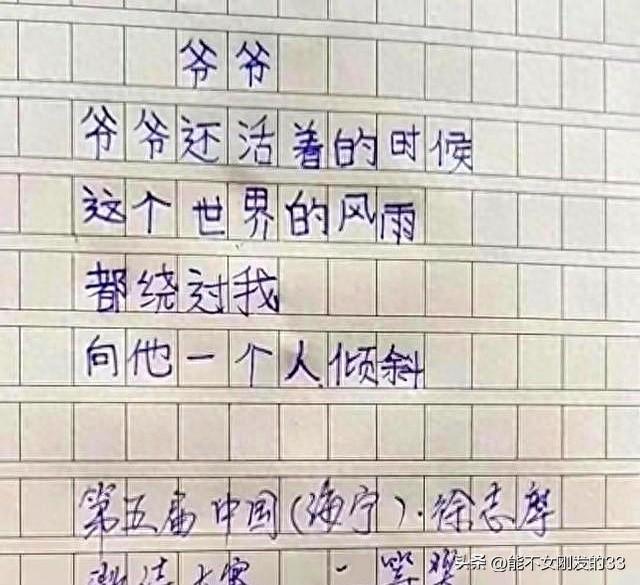 爷爷
爷爷还活着的时候
这个世界的风雨
都绕过我
向他一个人倾斜
第五届中国(海宁)·徐志摩
头条 @能不女刚发的33